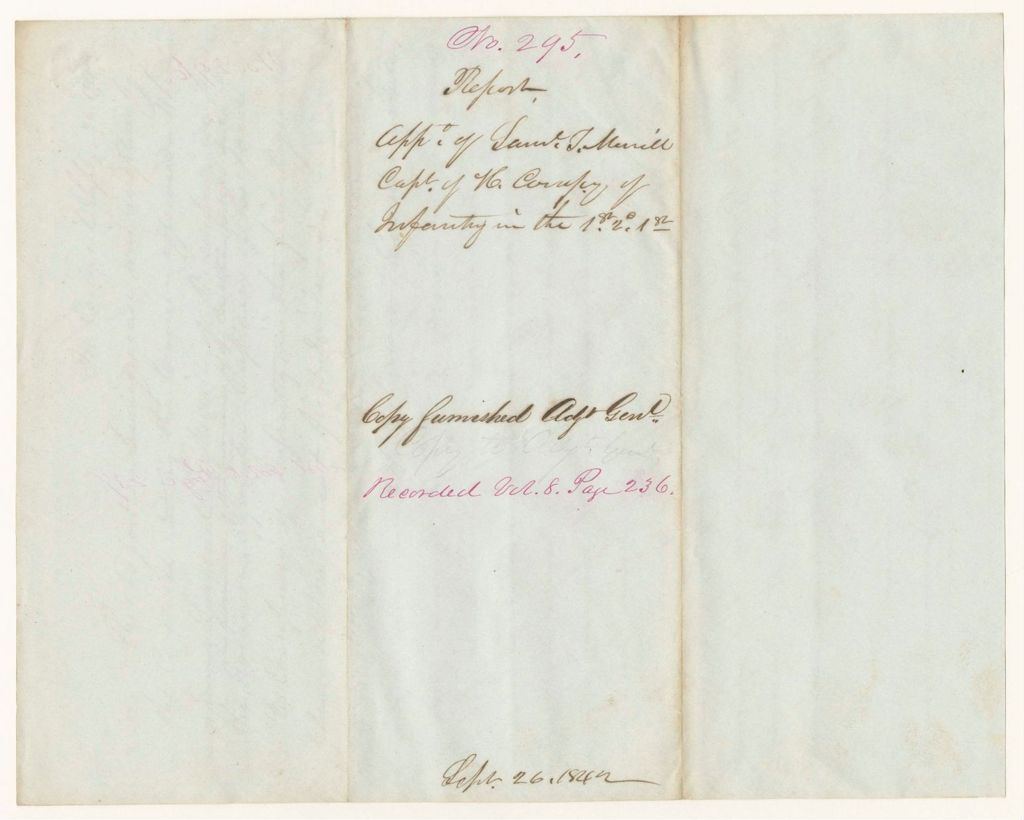 No. 295.
Report,
App.t of Saml. T. Merrill
Capt. of H. Compy. of
Infantry in the 1st. 2d. 1st
Copy furnished Adjt Genl.
Copy to Adjt. Genl
Recorded Vol. 8. Page 236.
Sept. 26. 1842